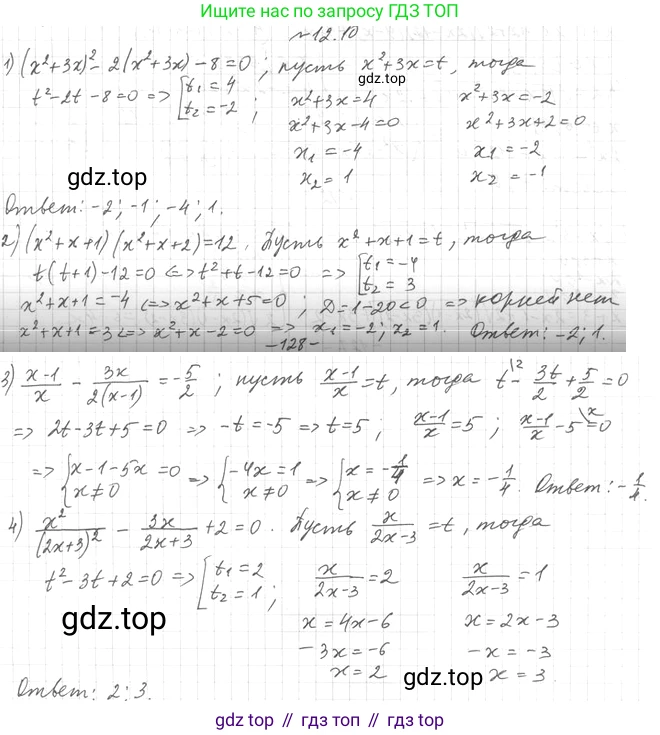 Ищите нас по запросу ГДЗ ТОП
№12.10
1) (x²+3x)²-2(x²+3x)-8=0; пусть x²+3x=t, тогда
t²-2t-8=0 => [t₁=4 t₂=-2; x²+3x=4 x²+3x=-2
x²+3x-4=0 x²+3x+2=0
x₁=-4 x₁=-2
x₂=1 x₂=-1
gdz.top
Ответ: -2; -1; -4; 1.
2) (x²+x+1)(x²+x+2)=12. Пусть x²+x+1=t, тогда
t(t+1)-12=0 <=> t²+t-12=0 => [t₁=-4 t₂=3
x²+x+1=-4 <=> x²+x+5=0; D=1-20<0 => корней нет
x²+x+1=3 <=> x²+x-2=0 => x₁=-2; x₂=1. Ответ: -2; 1.
-128-
3) (x-1)/x - 3x/(2(x-1)) = -5/2; пусть (x-1)/x=t, тогда t\² - 3t/2 + 5/2 = 0
=> 2t-3t+5=0 => -t=-5 => t=5; (x-1)/x=5; (x-1)/x-5\x=0
=> {x-1-5x=0 x≠0 => {-4x=1 x≠0 => {x=-1/4 x≠0 => x=-1/4. Ответ: -1/4.
4) x²/(2x+3)² - 3x/(2x+3) + 2=0. Пусть x/(2x-3)=t, тогда
t²-3t+2=0 => [t₁=2 t₂=1; x/(2x-3)=2 x/(2x-3)=1
gdz.top
x=4x-6 x=2x-3
-3x=-6 -x=-3
x=2 x=3
gdz.top
Ответ: 2; 3.
gdz.top // гдз.топ // gdz.top